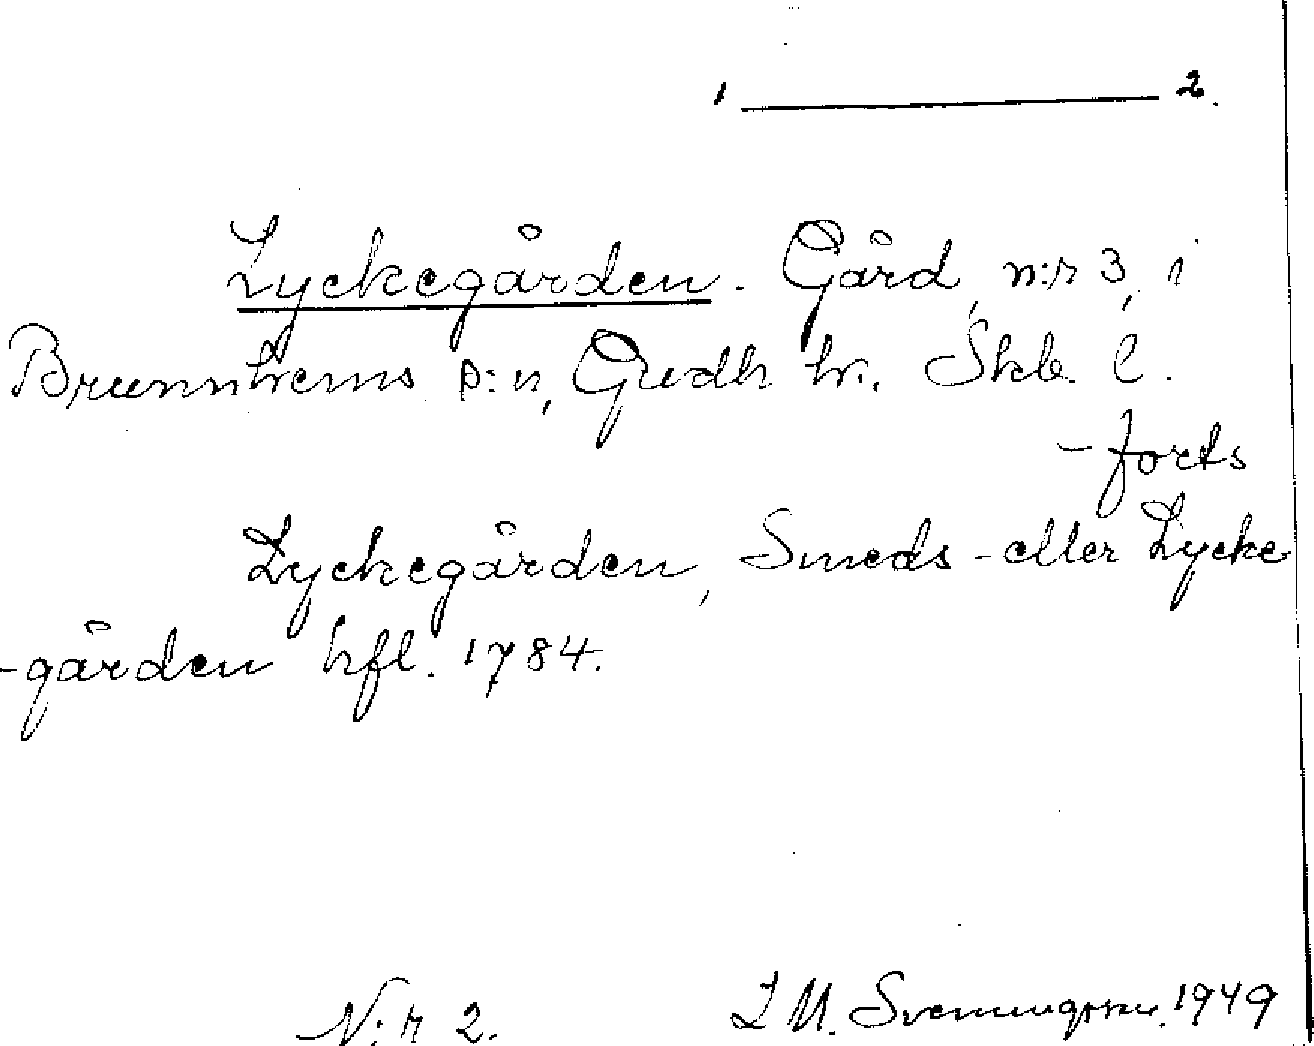 1 ———— 2.
Lyckegården. Gård, n:r 3, i
Brunnhems s:n, Gudh hr. Skb. l.
- forts
Lyckegården, Smeds- eller Lycke
-gården hfl. 1784.
N:r 2. I M. Svenungsson. 1949